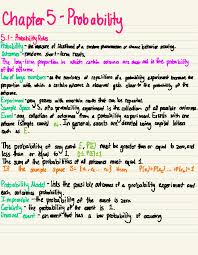 Chapter 5 - Probability
5.1 - Probability Rules
Probability - the measure of likelihood of a random phenomenon or chance behavior occurring.
Outcomes - random short-term results.
The long-term proportion in which certain outcomes are observed is the probability
of that outcome.
Law of large numbers - as the number of repetitions of a probability experiment increases the
proportion with which a certain outcome is observed gets closer to the probability of the outcome.
Experiment - any process with uncertain results that can be repeated.
Sample Space - S, of a probability experiment is the collection of all possible outcomes.
Event - any collection of outcomes from a probability experiment. Events with one
outcome (simple events) In general, events are denoted using capital letters
such as E.
The probability of any event E, P(E) must be greater than or equal to zero, and
less than or equal to 1. 0 ≤ P(E) ≤ 1
The sum of the probabilities of all outcomes must equal 1.
If the sample space
Probability Model - lists the possible outcomes of a probability experiment and
each outcomes probability.
Impossible - the probability of the event is zero.
Certainty - the probability of the event is 1.
Unusual event - an event that has a low probability of occurring